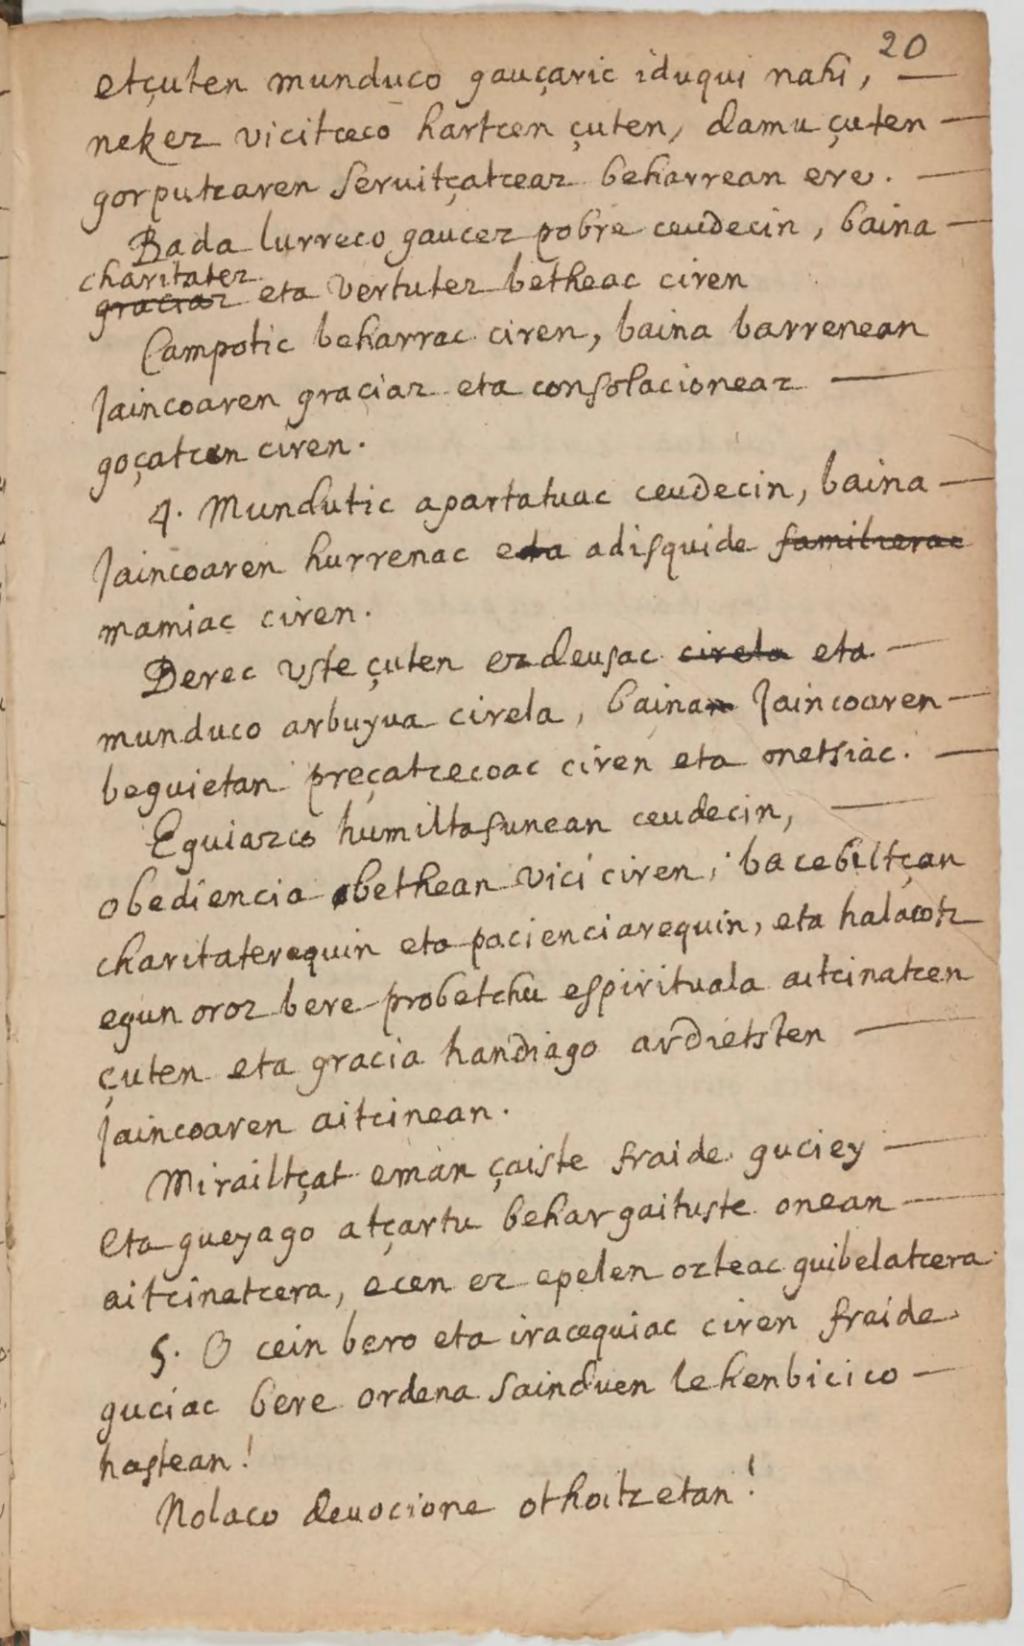 20
etçuten munduco gauçaric iduqui nahi, —
nekez vicitceco hartcen çuten, damu çuten —
gorputzaren seruitçatceaz beharrean ere. —
Bada lurreco gaucez pobre ceudecin, baina —
charitatez
graciaz eta vertutez betheac ciren
Campotic beharrac ciren, baina barrenean
Jaincoaren graciaz eta consolacioneaz —
goçatcen ciren.
4. Mundutic apartatuac ceudecin, baina —
Jaincoaren hurrenac eta adisquide familierac
mamiac ciren.
Berec uste çuten ez deusac cirela eta —
munduco arbuyua cirela, bainan Jaincoaren —
beguietan preçatcecoac ciren eta onetsiac. —
Eguiazco humiltasunean ceudecin, —
obediencia bethean vici ciren, bacebiltçan
charitaterequin eta pacienciarequin, eta halacotz
egun oroz bere probetchu espirituala aitcinatcen
çuten eta gracia handiago ardietsten —
Jaincoaren aitcinean.
Mirailtçat eman çaiste fraide guciey —
eta gueyago atçartu behar gaituste onean —
aitcinatcera, ecen ez epelen ozteac guibelatcera
5. O cein bero eta iracequiac ciren fraide
guciac bere ordena sainduen lehenbicico —
hastean!
Nolaco deuocione othoitzetan!